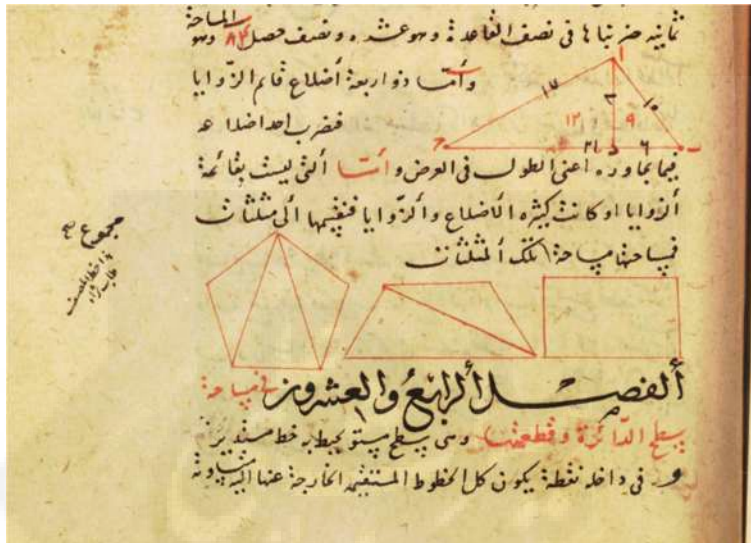 ثمانية ضربناها في نصف القاعدة وهو عشرة ونصف فحصل ٨٤ وهو المساحة
وأمّا ذو اربعة أضلاع قائم الزّوايا
فضرب احد اضلاعه
فيما يجاوره اعنى الطول في العرض وأمّا ألتى ليست بقائمة
ألزّوايا او كانت كثيرة الأضلاع وألزّوايا فنقسّمها ألى مثلثات
فمساحتها مساحة تلك ألمثلثات
ألفصل ألرابع والعشرون في مساحة
سطح الدّائرة وقطعتها وهى سطح مستو يحيط به خط مستدير
و في داخله نقطة يكون كل الخطوط المستقيمة الخارجة عنها إليه متساوية
ا
١٧
١٠
١٢
٩
٦
د
ب
مجموع